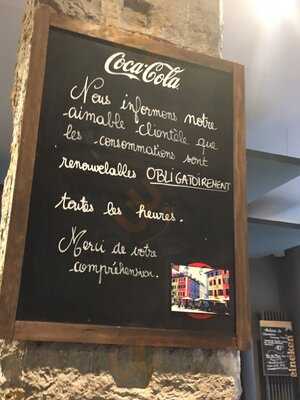 Coca-Cola
Nous informons notre
aimable clientèle que
les consommations sont
renouvelables OBLIGATOIREMENT
toutes les heures.
Merci de votre
compréhension.
Heineken